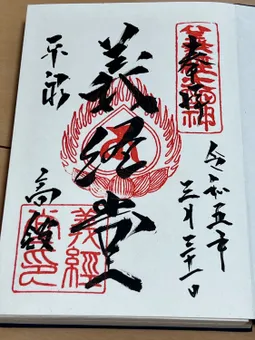 奉拝
令和五年
三月三十一日
義経堂
平泉
高館
義經
堂印